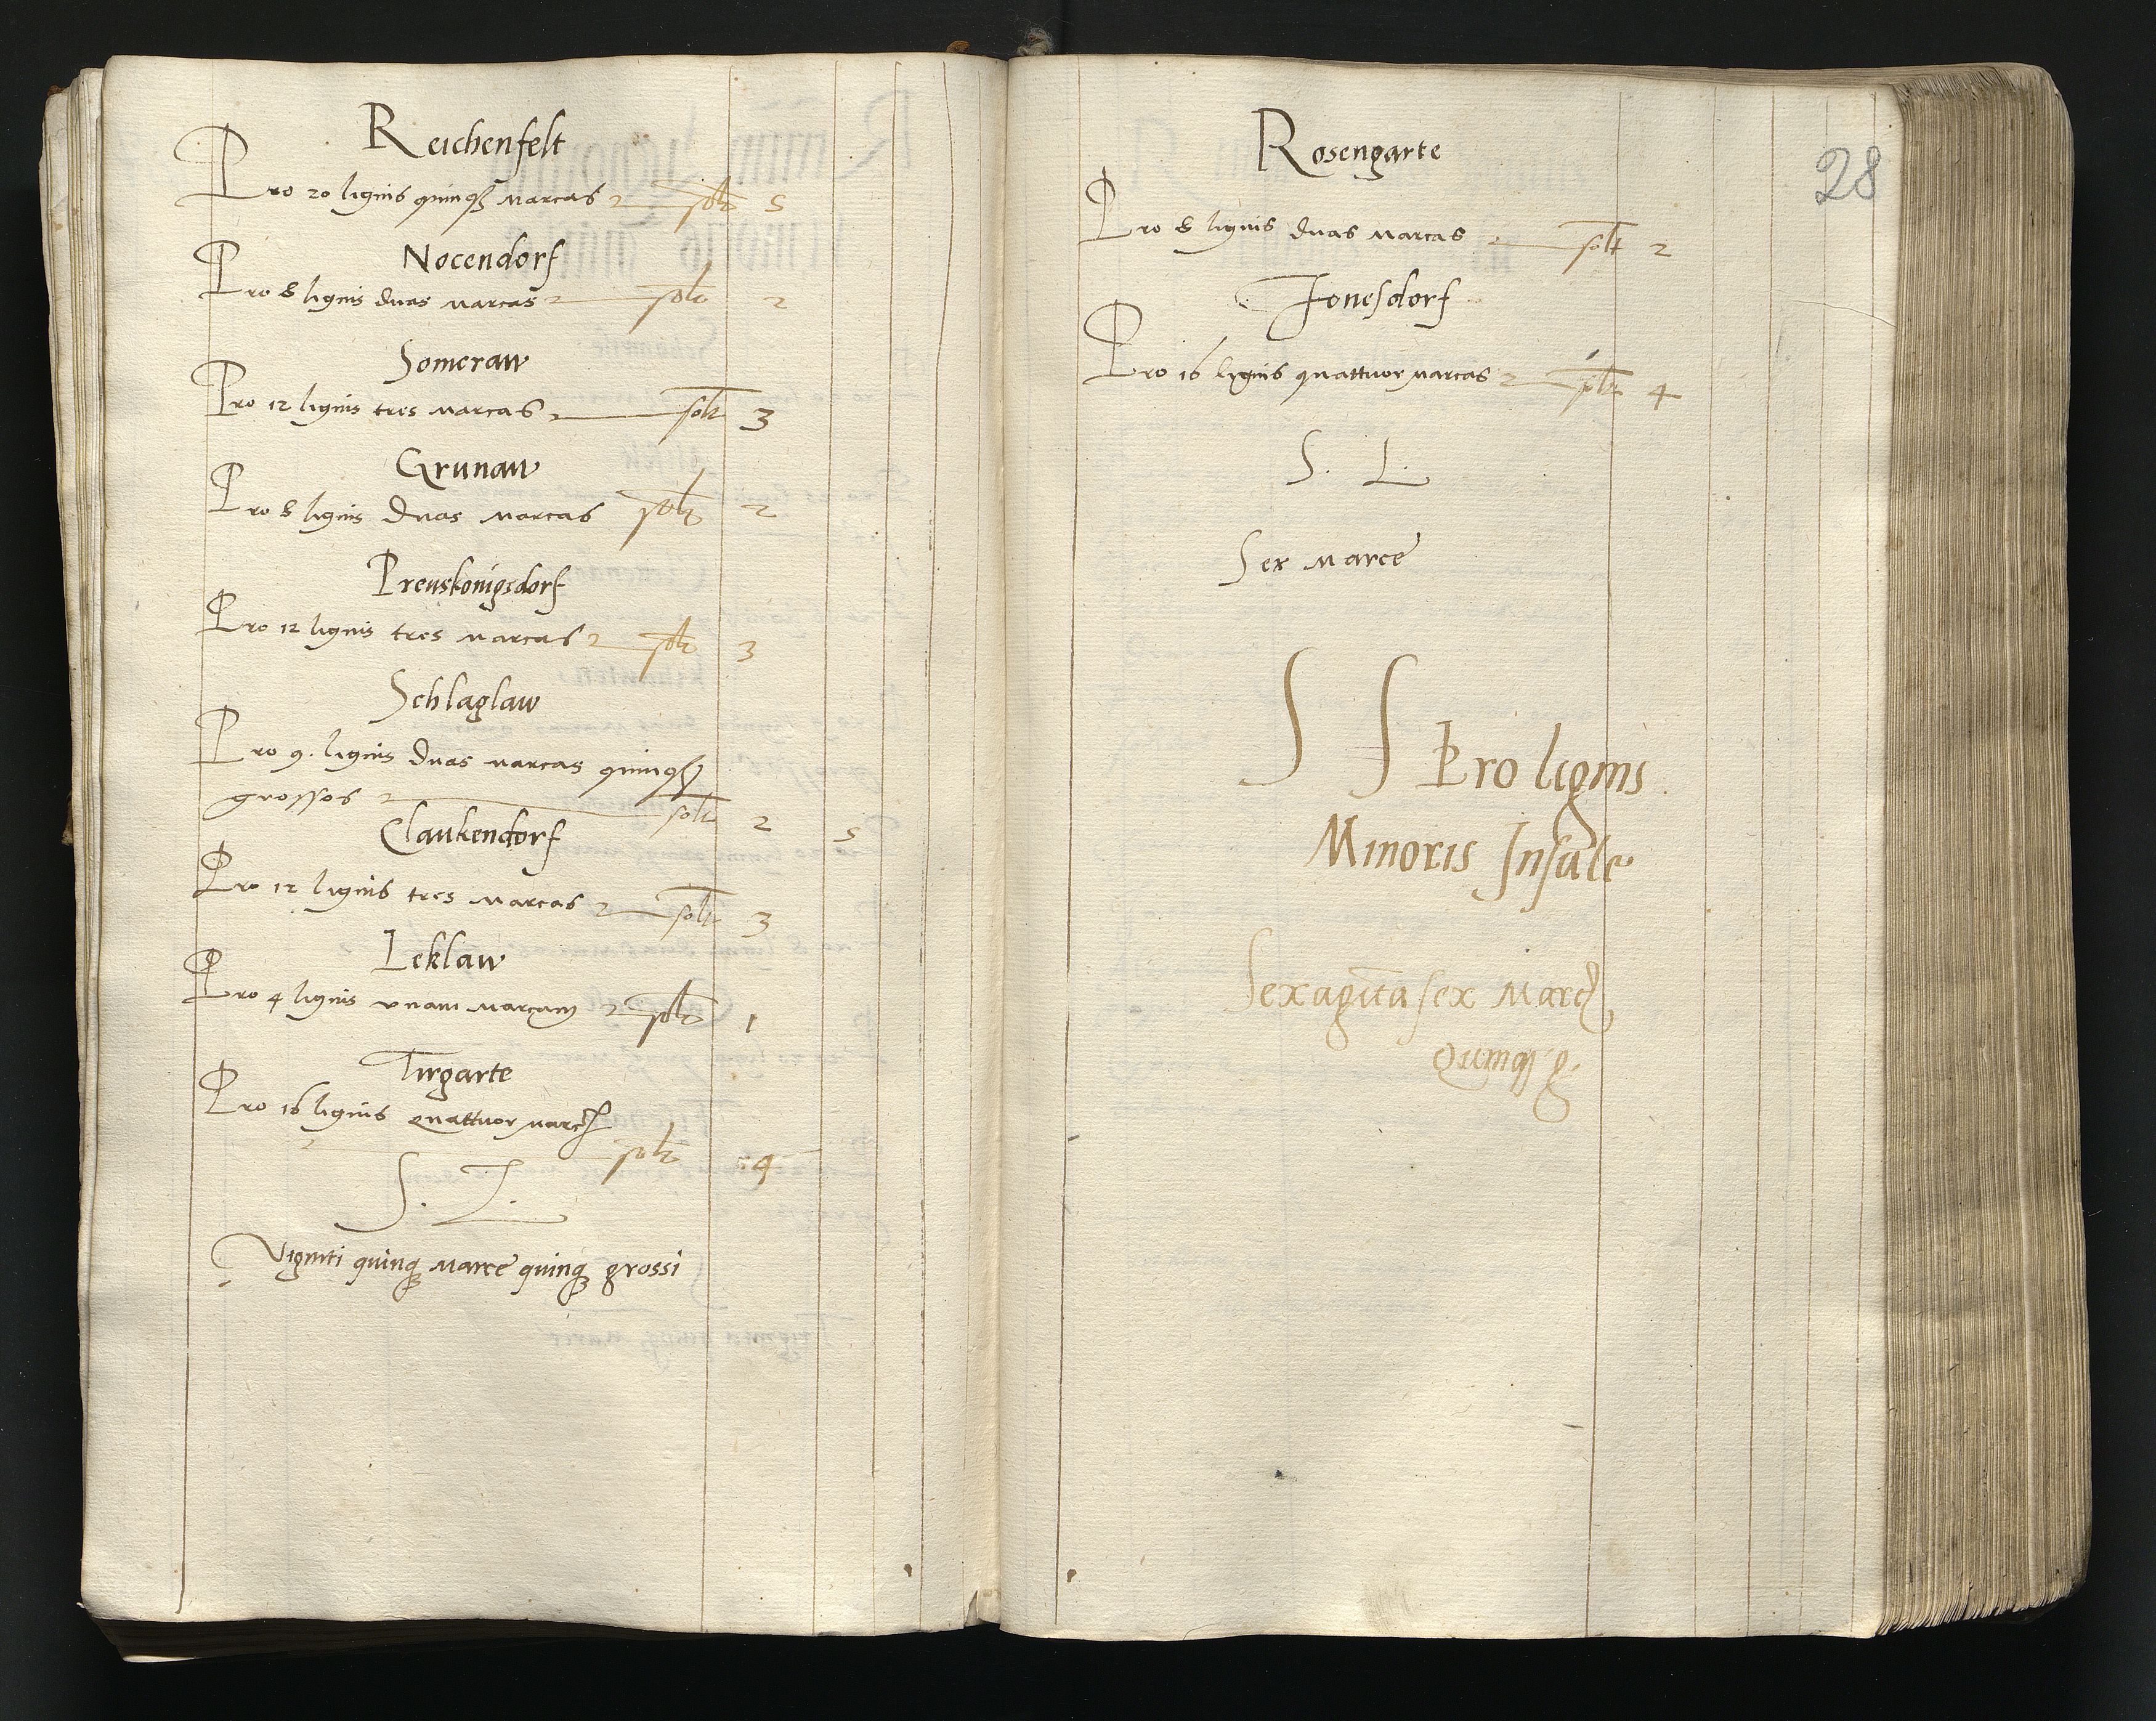 Reichenfelt
Pro 20 lignis quinqꝫ marcas solt 5
Nocendorf
Pro 8 lignis duas marcas solt 2
Someraw
Pro 12 lignis tres marcas solt 3
Grunaw
Pro 8 lignis duas marcas solt 2
Preuskonigsdorf
Pro 12 lignis tres marcas solt 3
Schlaglaw
Pro 9. lignis duas marcas quinqꝫ
grossos solt 2 5
Claukendorf
Pro 12 lignis tres marcas solt 3
Leklaw
Pro 4 lignis vnam marcam solt 1
Tirgarte
Pro 16 lignis quattuor marcꝭ
solt 4
S. L.
Viginti quinqꝫ marce quinqꝫ grossi
28
Rosengarte
Pro 8 lignis duas marcas solt 2
Jonesdorf
Pro 16 lignis quattuor marcas solt 4
S. L.
Sex marce
S S Pro lignis
Minoris Insule
Sexagīta sex marcꝭ
Quinqꝫ g.